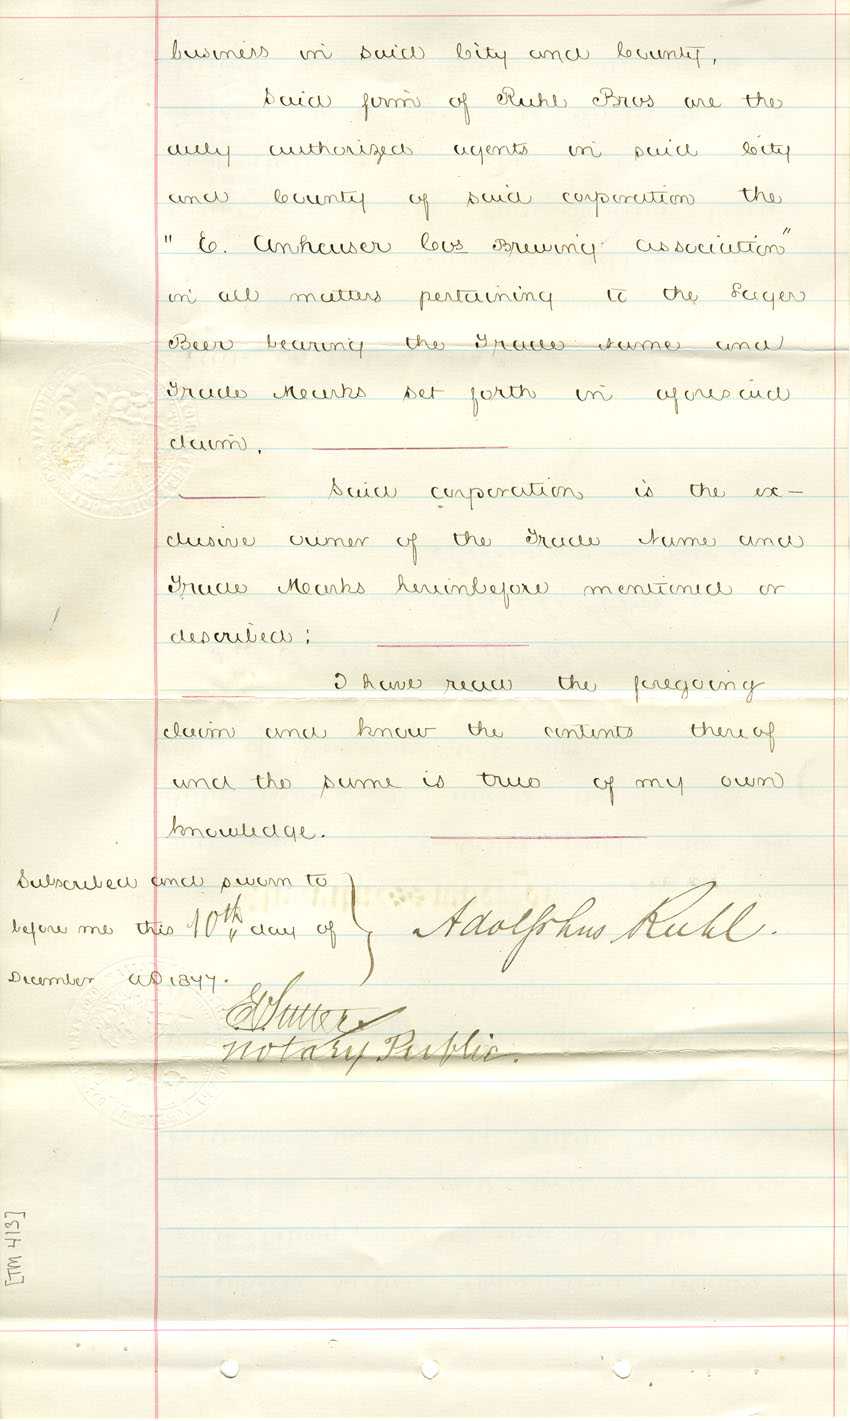 business in said City and County,
Said firm of Ruhl Bros are the
duly authorized agents in said City
and County of said corporation the
" E. Anheuser Cos Brewing Association"
in all matters pertaining to the Lager
Beer bearing the Trade Name and
Trade Marks set forth in aforesaid
claim.
Said corporation is the ex–
clusive owner of the Trade Name and
Trade Marks hereinbefore mentioned or
described:
I have read the foregoing
claim and know the contents thereof
and the same is true of my own
knowledge.
Subscribed and sworn to
before me this 10th day of
December AD 1877.
Adolphus Ruhl.
Notary Public.
[TM 413]